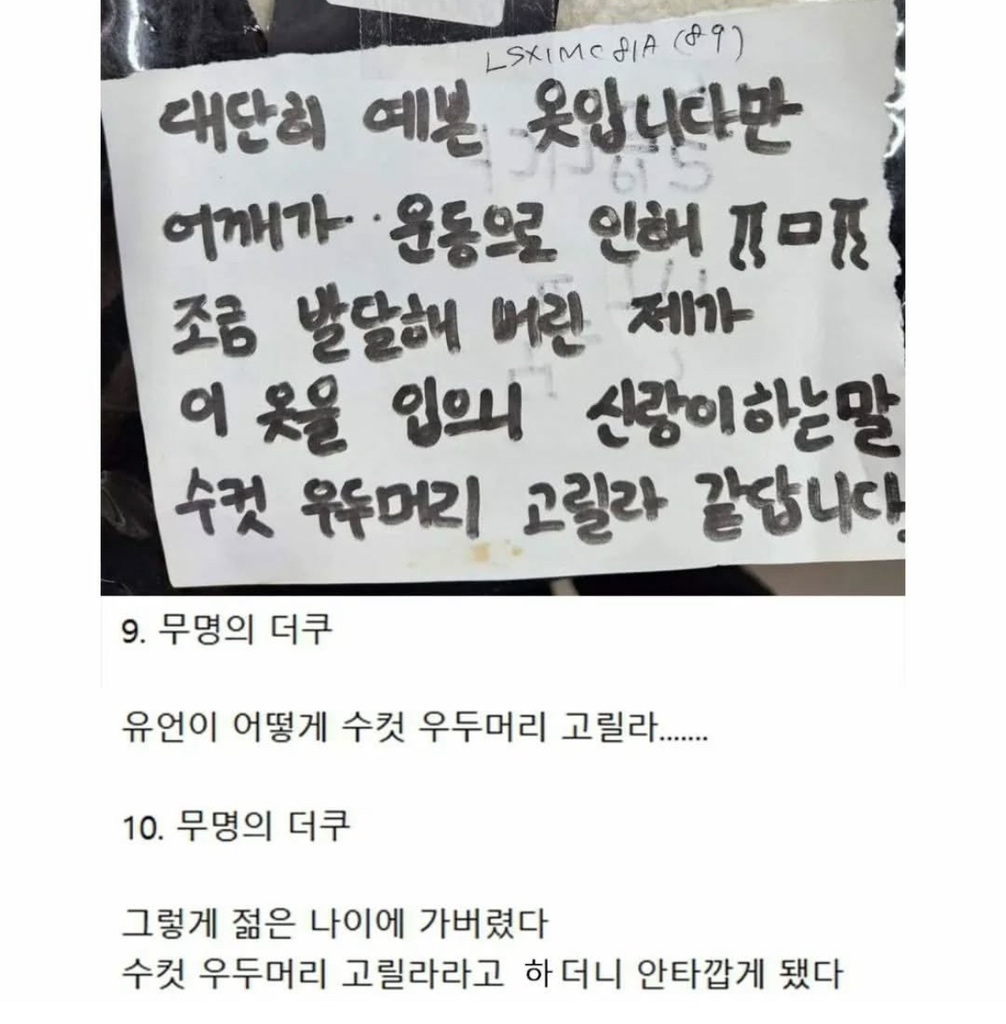 LSXIMC81A (89)
대단히 예쁜 옷입니다만
어깨가.. 운동으로 인해 ㅠㅁㅠ
조금 발달해 버린 제가
이 옷을 입으니 신랑이하는말
수컷 우두머리 고릴라 같답니다.
9. 무명의 더쿠
유언이 어떻게 수컷 우두머리 고릴라.......
10. 무명의 더쿠
그렇게 젊은 나이에 가버렸다
수컷 우두머리 고릴라라고 하더니 안타깝게 됐다